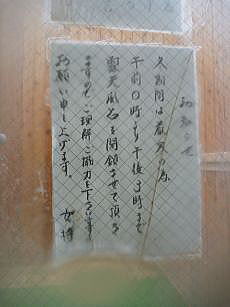 お知らせ
冬期間は厳寒の為
午前0時より午後3時まで
露天風呂を閉鎖させて頂き
ますので、ご理解ご協力を下さいますよう
お願い申し上げます。
女将